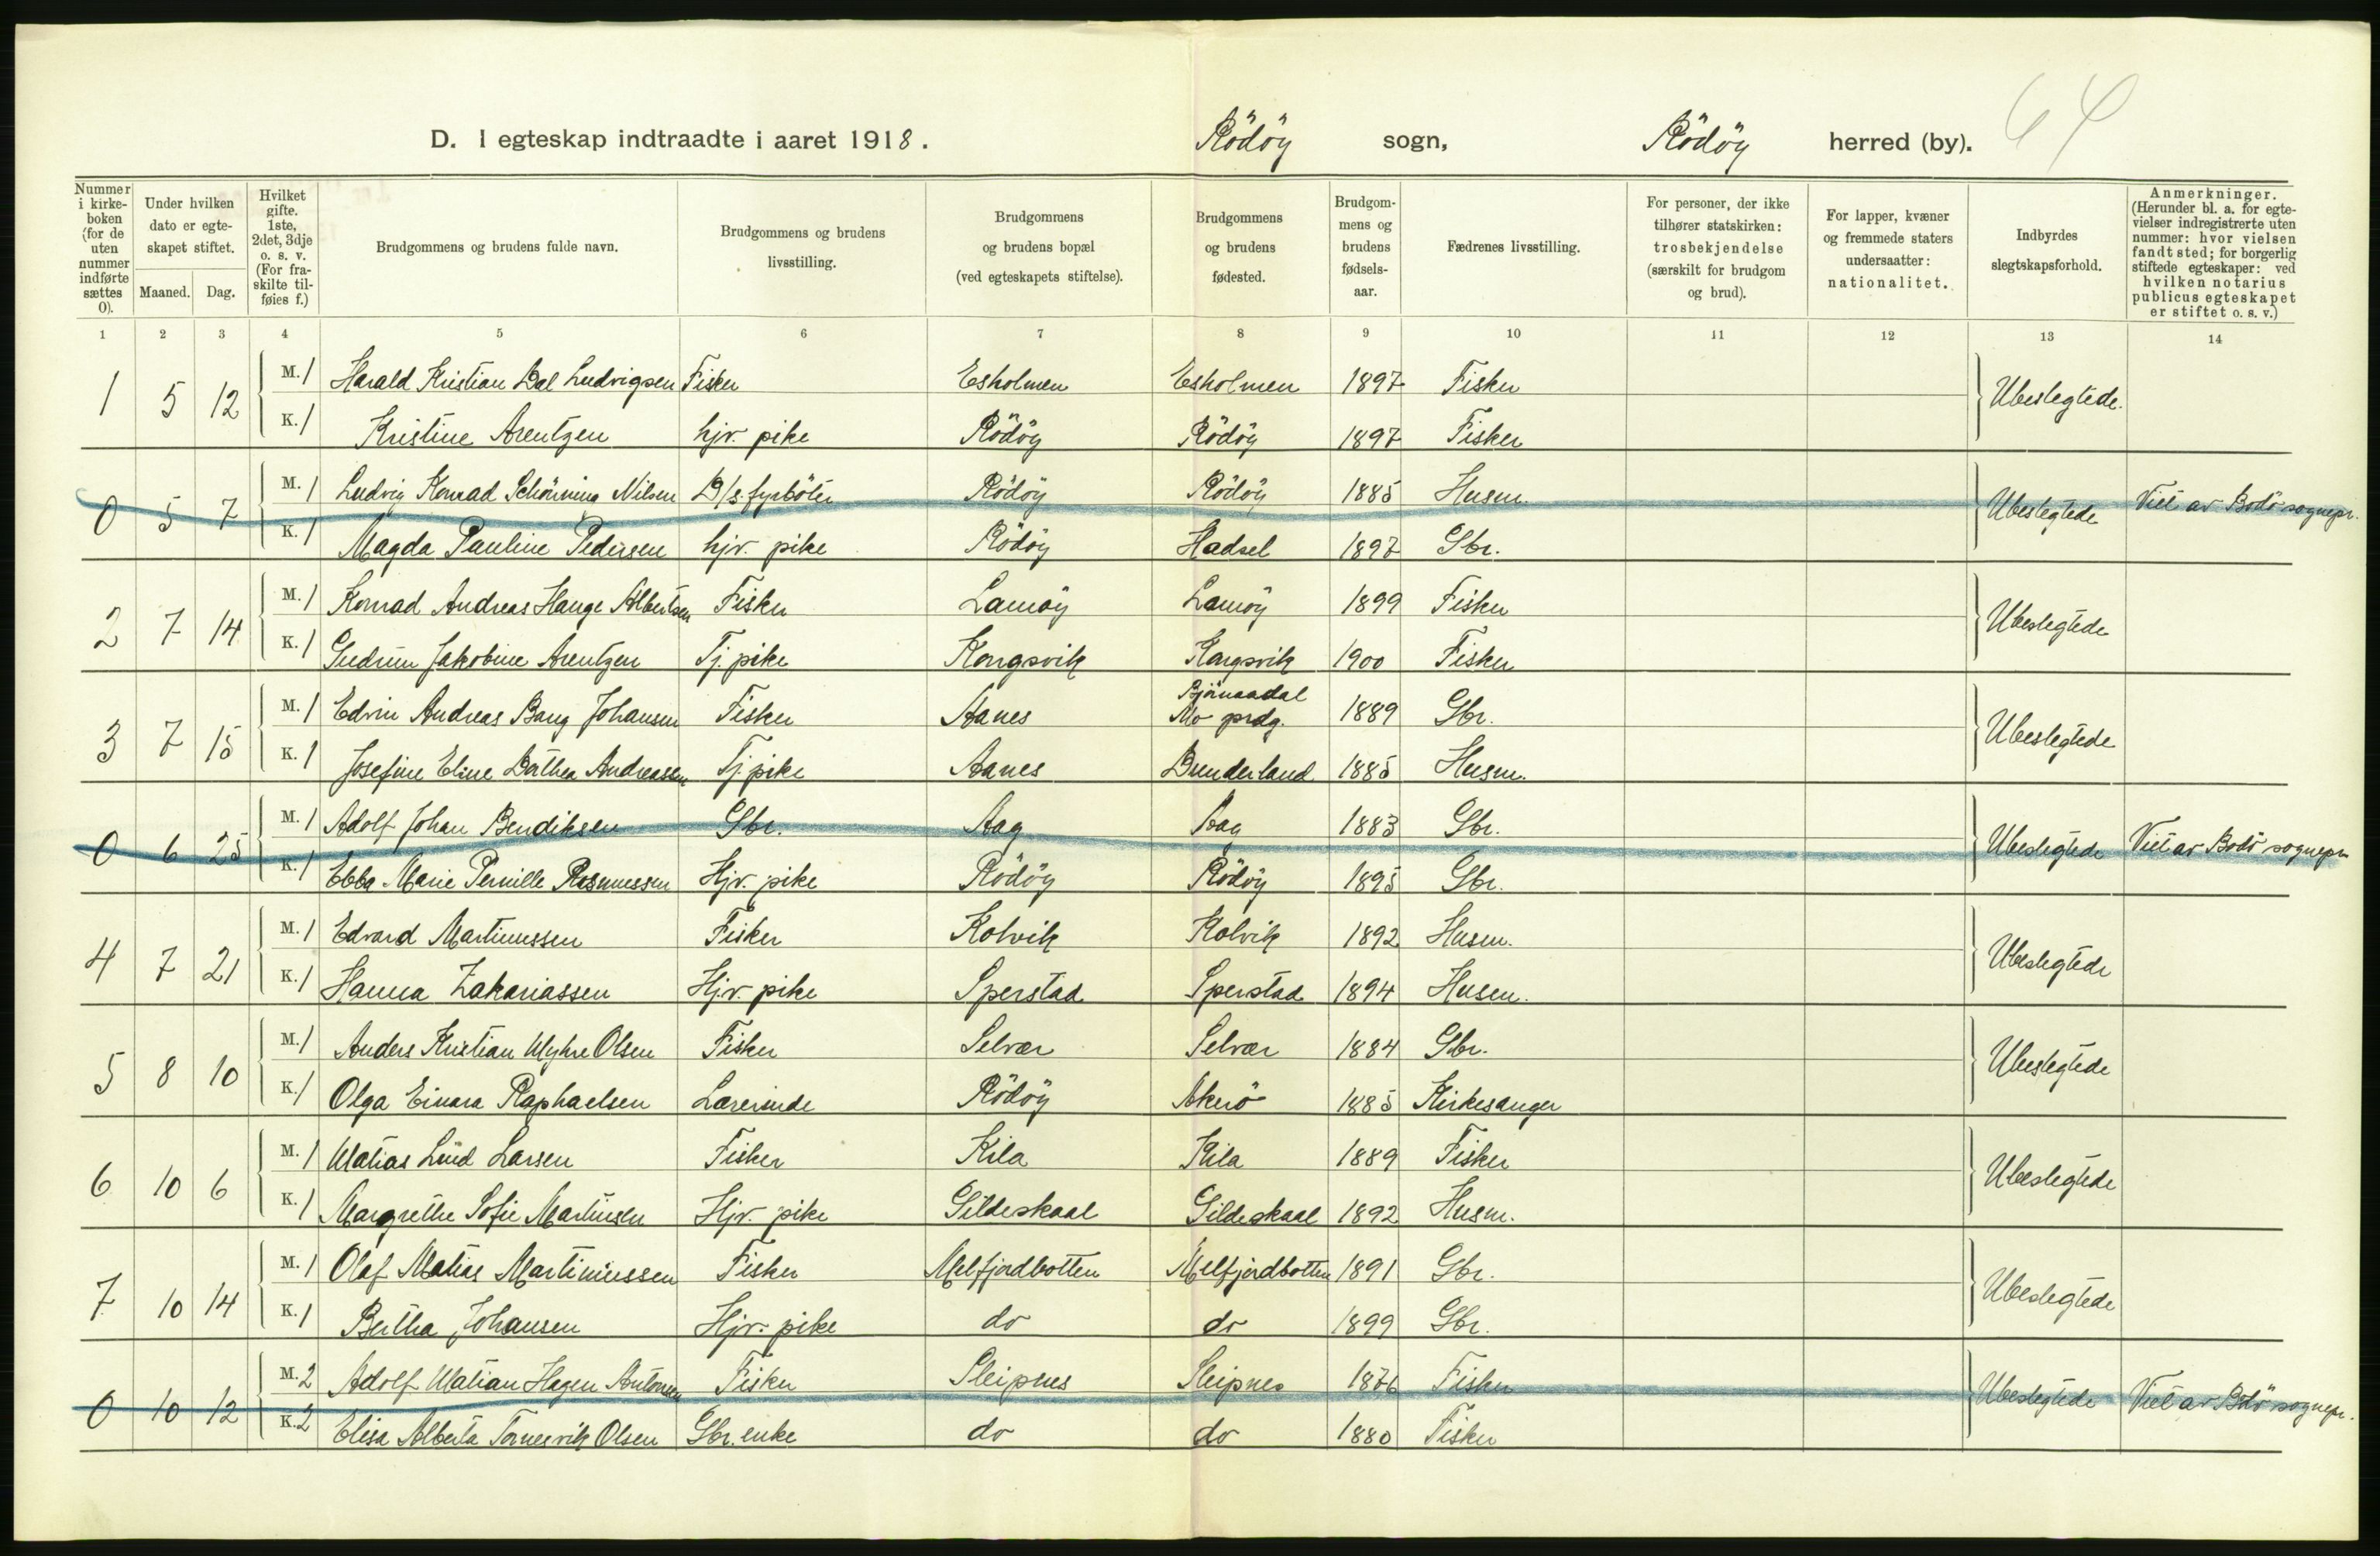 D. I egteskap indtraadte i aaret 1918. Rödöy sogn, Rödöy herred (by). 64
Nummer i kirkeboken (for de uten nummer indførte sættes 0). Under hvilken dato er egteskapet stiftet. Maaned. Dag. Hvilket gifte. 1ste, 2det, 3dje o. s. v. (For fraskilte tilføies f.) Brudgommens og brudens fulde navn. Brudgommens og brudens livsstilling. Brudgommens og brudens bopæl (ved egteskapets stiftelse). Brudgommens og brudens fødested. Brudgommens og brudens fødselsaar. Fædrenes livsstilling. For personer, der ikke tilhører statskirken: trosbekjendelse (særskilt for brudgom og brud). For lapper, kvæner og fremmede staters undersaatter: nationalitet. Indbyrdes slegtskapsforhold. Anmerkninger. (Herunder bl. a. for egtevielser indregistrerte uten nummer: hvor vielsen fandt sted; for borgerlig stiftede egteskaper: ved hvilken notarius publicus egteskapet er stiftet o. s. v.)
1 2 3 4 5 6 7 8 9 10 11 12 13 14
1 5 12 M. 1 Harald Kristian Dal Ludvigsen Fisker Esholmen Esholmen 1897 Fisker Ubeslegtede.
K. 1 Kristine Arentzen hjv. pike Rödöy Rödöy 1897 Fisker
0 5 7 M. 1 Ludvig Konrad Schönning Nilsen D/s. fyrböter Rödöy Rödöy 1885 Husm. Ubeslegtede Viet av Bodö sognepr.
K. 1 Magda Pauline Pedersen hjv. pike Rödöy Hadsel 1897 Gbr.
2 7 14 M. 1 Konrad Andreas Hauge Albertsen Fisker Lamöy Lamöy 1899 Fisker Ubeslegtede
K. 1 Gudrun Jakobine Arentzen Tj. pike Kongsvik Kongsvik 1900 Fisker
3 7 15 M. 1 Edvin Andreas Bang Johansen Fisker Aanes Bjömaadal Mo prdg. 1889 Gbr. Ubeslegtede
K. 1 Josefine Eline Dorthea Andreassen Tj. pike Aanes Dunderland 1885 Husm.
0 6 25 M. 1 Adolf Johan Bendiksen Gbr. Aag Aag 1883 Gbr. Ubeslegtede Viet av Bodö sognepr.
K. 1 Ebba Marie Pernille Rasmussen Hjv. pike Rödöy Rödöy 1895 Gbr.
4 7 21 M. 1 Edvard Martinussen Fisker Kolvik Kolvik 1892 Husm. Ubeslegtede
K. 1 Hanna Zakariassen Hj.v. pike Sperstad Sperstad 1894 Husm.
5 8 10 M. 1 Anders Kristian Myhre Olsen Fisker Selvær Selvær 1884 Gbr. Ubeslegtede
K. 1 Olga Einara Raphaelsen Lærerinde Rödöy Akerö 1885 Kirkesanger
6 10 6 M. 1 Matias Lind Larsen Fisker Kila Kila 1889 Fisker Ubeslegtede
K. 1 Margrethe Sofie Martinsen Hjv. pike Gildeskaal Gildeskaal 1892 Husm.
7 10 14 M. 1 Olaf Matias Martiniussen Fisker Melfjordbotten Melfjordbotten 1891 Gbr. Ubeslegtede
K. 1 Bertha Johansen Hjv. pike do do 1899 Gbr.
0 10 12 M. 2 Adolf Matian Hagen Antonsen Fisker Sleipnes Sleipnes 1876 Fisker Ubeslegtede Viet av Bodö sognepr.
K. 2 Elisa Alberta Tornesvik Olsen Gbr. enke do do 1880 Fisker